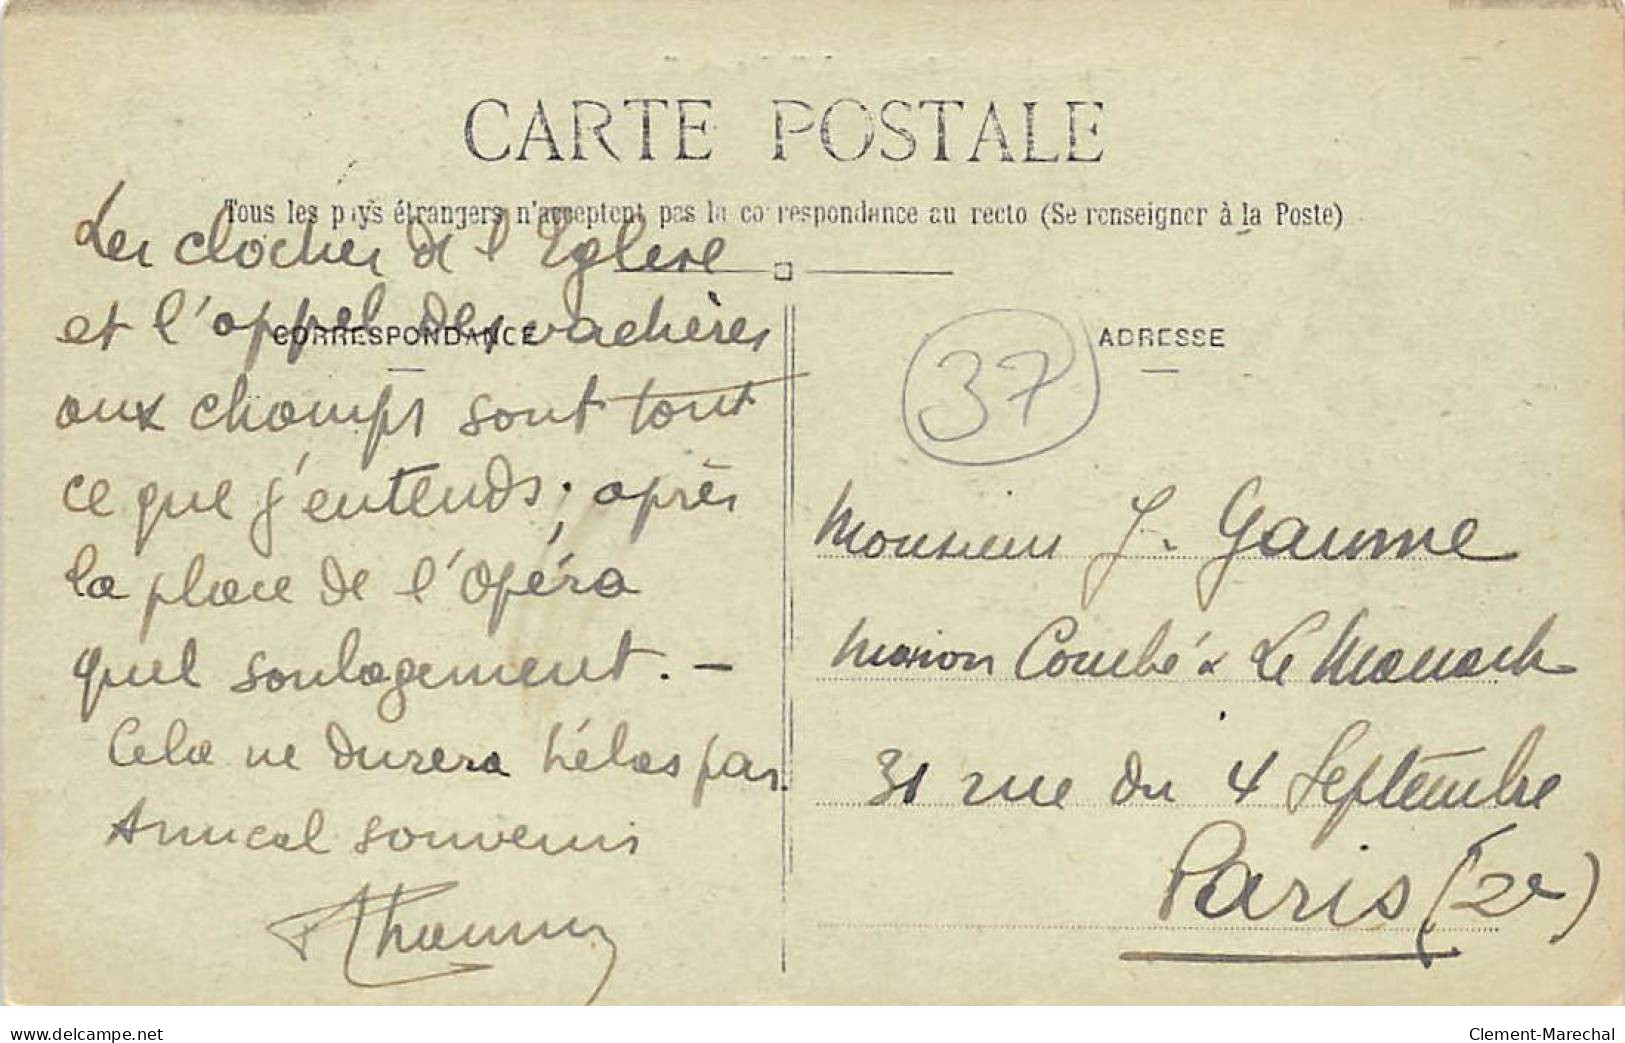 CARTE POSTALE
Tous les pays étrangers n'acceptent pas la correspondance au recto (Se renseigner à la Poste)
CORRESPONDANCE
Les cloches de l'Eglise
et l'appel des vachères
aux champs sont tout
ce que j'entends; après
la place de l'Opéra
quel soulagement. —
Cela ne durera hélas pas.
Amical souvenir
ADRESSE
37
Monsieur J. Gaume
Maison Combé & Le Manach
31 rue du 4 Septembre
Paris (2e)
www.delcampe.net
Clement-Marechal